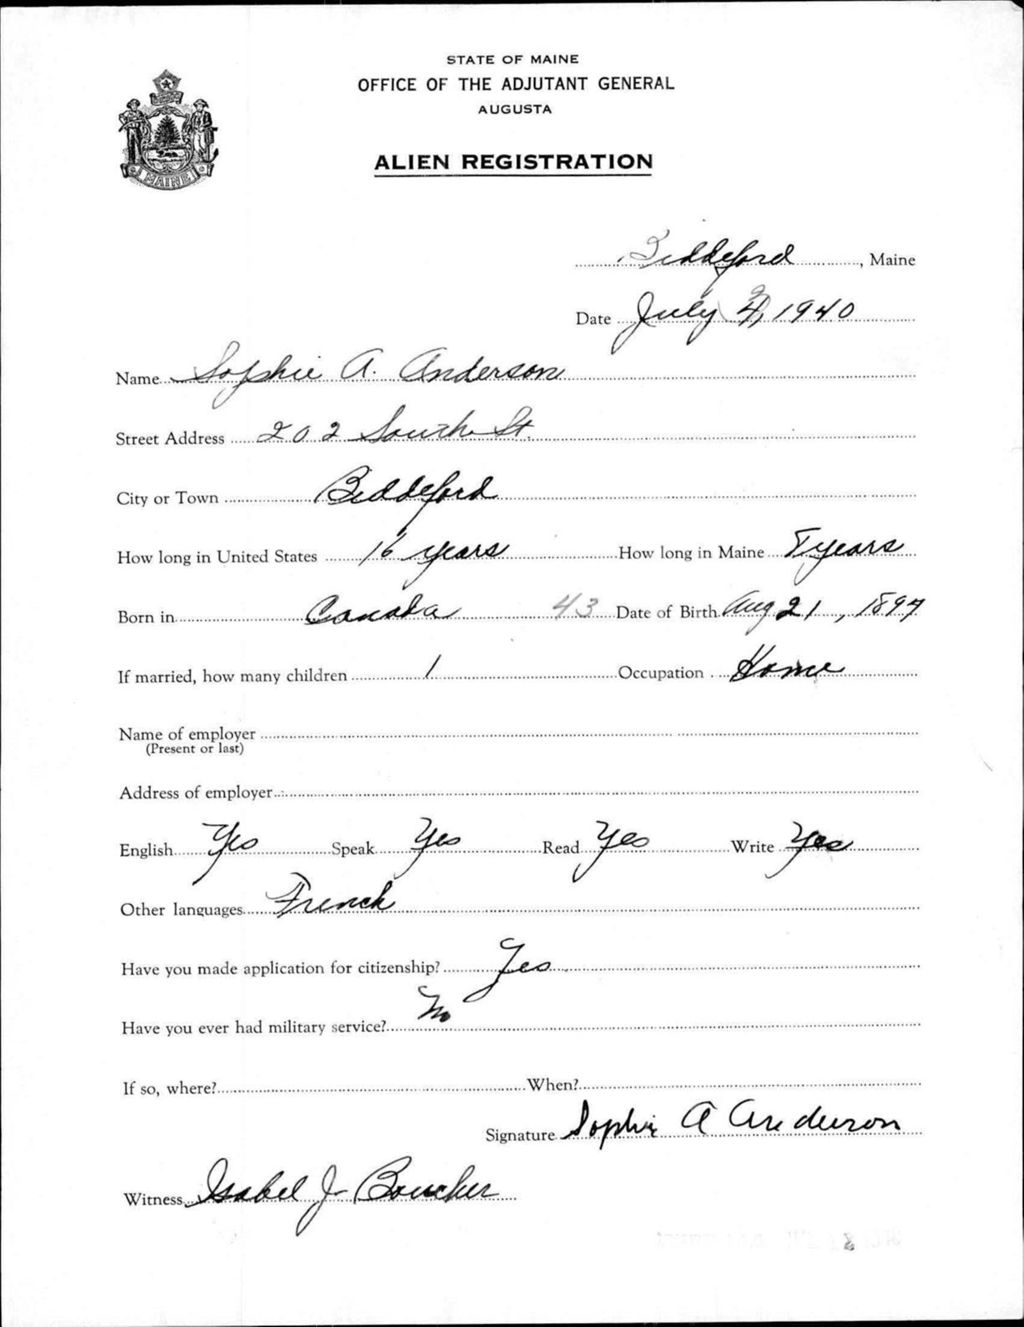 STATE OF MAINE
OFFICE OF THE ADJUTANT GENERAL
AUGUSTA
ALIEN REGISTRATION
MAINE
Biddeford, Maine
Date July 1940
Name Sophie A. Anderson
Street Address 202 South St.
City or Town Biddeford
How long in United States 16 years How long in Maine years
Born in Canada 43 Date of Birth Aug 21, 1897
If married, how many children 1 Occupation Home
Name of employer
(Present or last)
Address of employer
English Yes Speak Yes Read Yes Write Yes
Other languages French
Have you made application for citizenship? Yes
Have you ever had military service? No
If so, where? When?
Signature Sophie A Anderson
Witness Isabel J Boucher